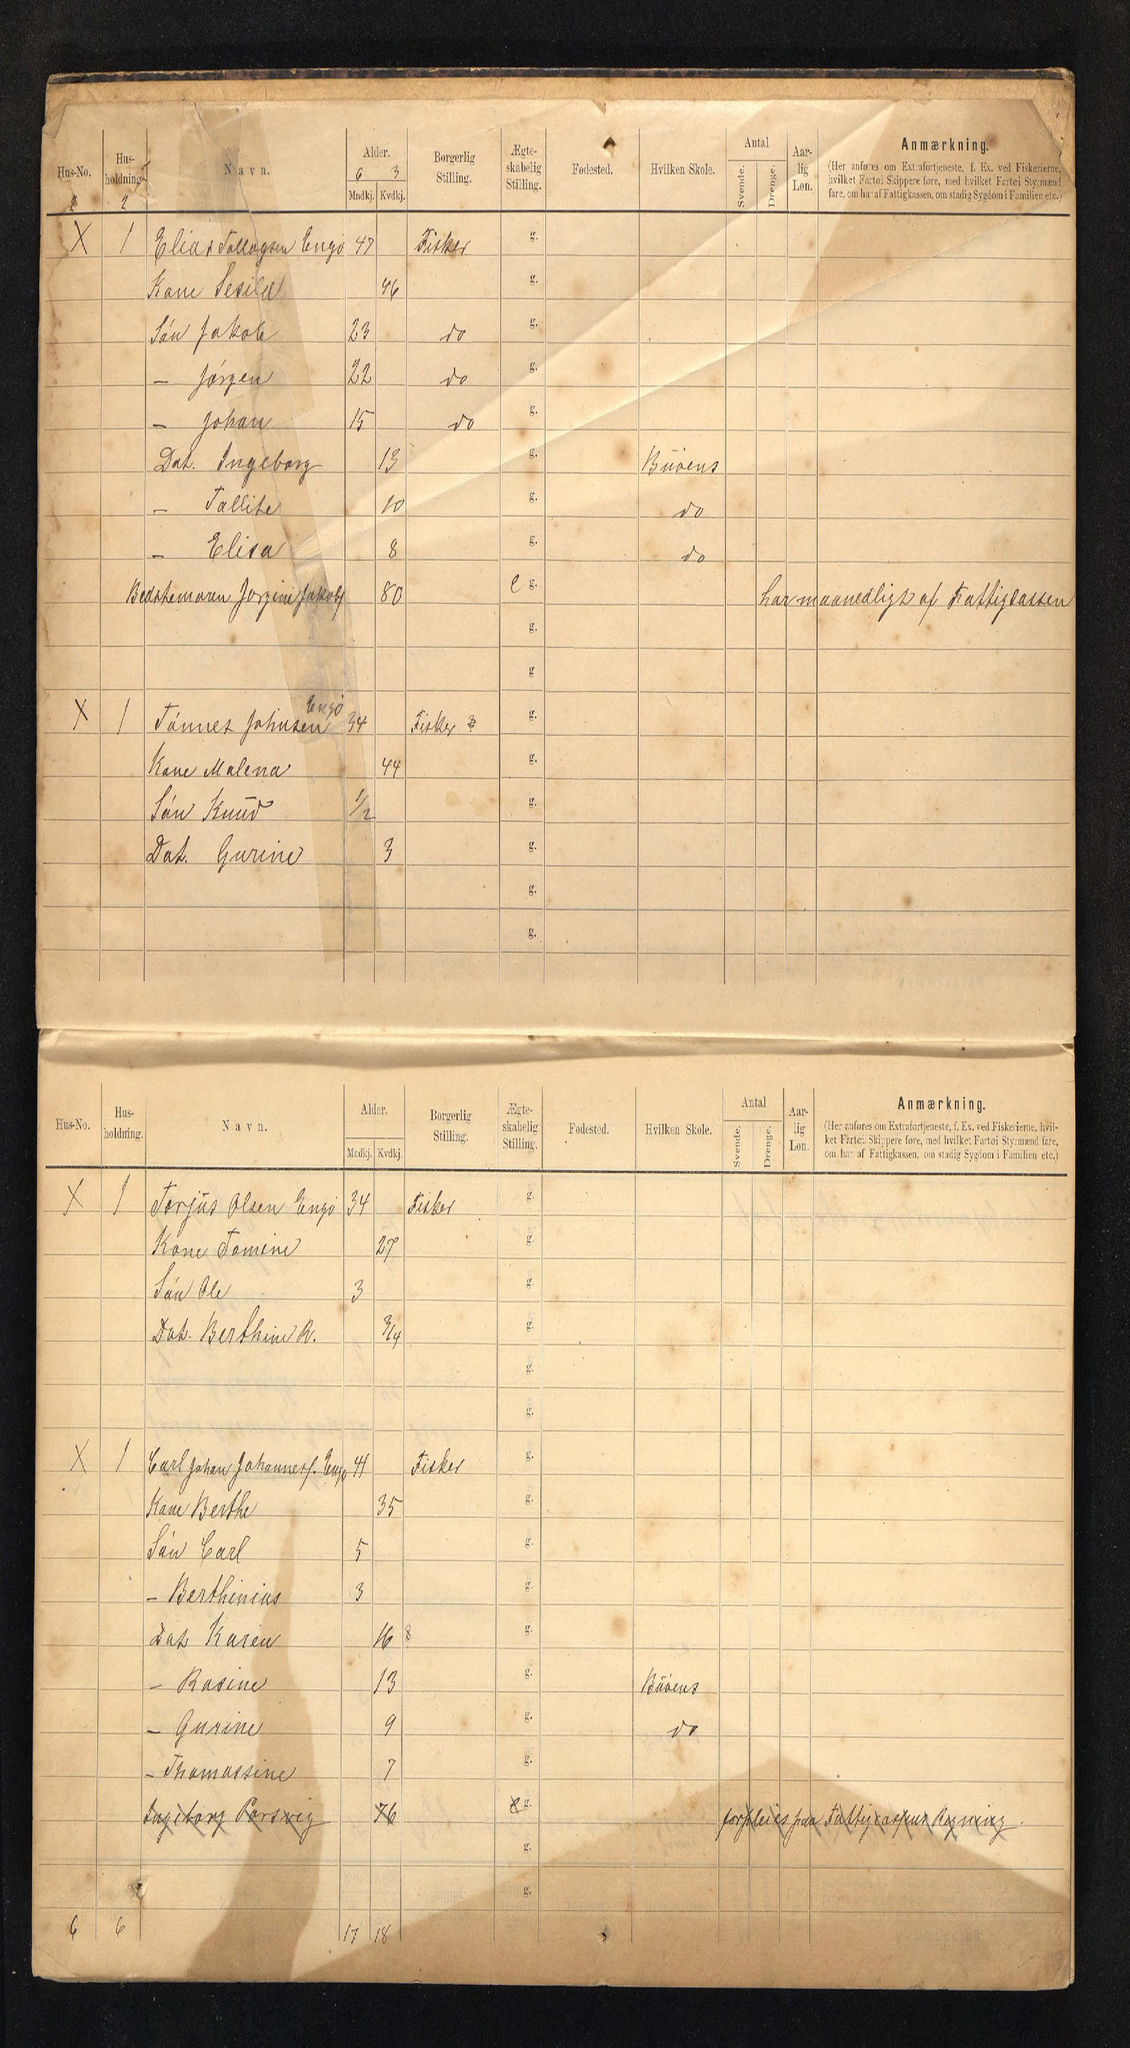 Hus-No. Hus-holdning. Navn. Alder. Borgerlig Stilling. Ægte-skabelig Stilling. Fødested. Hvilken Skole. Antal Aar-lig Løn. Anmærkning.
Mndkj. Kvdkj. Svende. Drenge.
(Her anføres om Extrafortjeneste, f. Ex. ved Fiskerierne,
hvilket Fartøi Skippere føre, med hvilket Fartøi Styrmænd
fare, om har af Fattigkassen, om stadig Sygdom i Familien etc.)
2 2 6 3
X 1 Elias Tallagsen Engø 47 Fisker g.
Kone Sesilie 46 g.
Søn Jakob 23 do g.
— Jørgen 22 do g.
— Johan 15 do g.
Dat. Ingeborg 13 g. Büøens
— Tallite 10 g. do
— Elisa 8 g. do
Bedstemoren Jorgine Jakobs 80 e g. har maanedligt af Fattigcassen
g.
g.
X 1 Tønnes Johnsen Engø 34 Fisker g.
Kone Malena 44 g.
Søn Knüd 1/2 g.
Dat. Gurine 3 g.
g.
g.
Hus-No. Hus-holdning. Navn. Alder. Borgerlig Stilling. Ægte-skabelig Stilling. Fødested. Hvilken Skole. Antal Aar-lig Løn. Anmærkning.
Mndkj. Kvdkj. Svende. Drenge.
(Her anføres om Extrafortjeneste, f. Ex. ved Fiskerierne, hvil-
ket Fartøi Skippere føre, med hvilket Fartøi Styrmænd fare,
om har af Fattigkassen, om stadig Sygdom i Familien etc.)
X 1 Terjüs Olsen Engø 34 Fisker g.
Kone Tomine 27 g.
Søn Ole 3 g.
Dat. Berthine R. 3/4 g.
g.
g.
X 1 Carl Johan Johanness. Engø 41 Fisker g.
Kone Berthe 35 g.
Søn Carl 5 g.
— Berthinius 3 g.
Dat Karen 16 g.
— Rasine 13 g. Büøens
— Gurine 9 g. do
— Thomassine 7 g.
Ingeborg Porsvig 76 e g. forpleies paa Fattigcassens Regning.
g.
g.
6 6 17 18